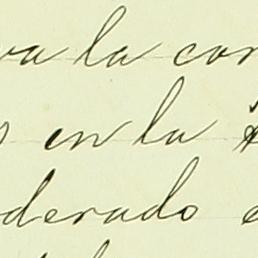 va la con
en la
derado